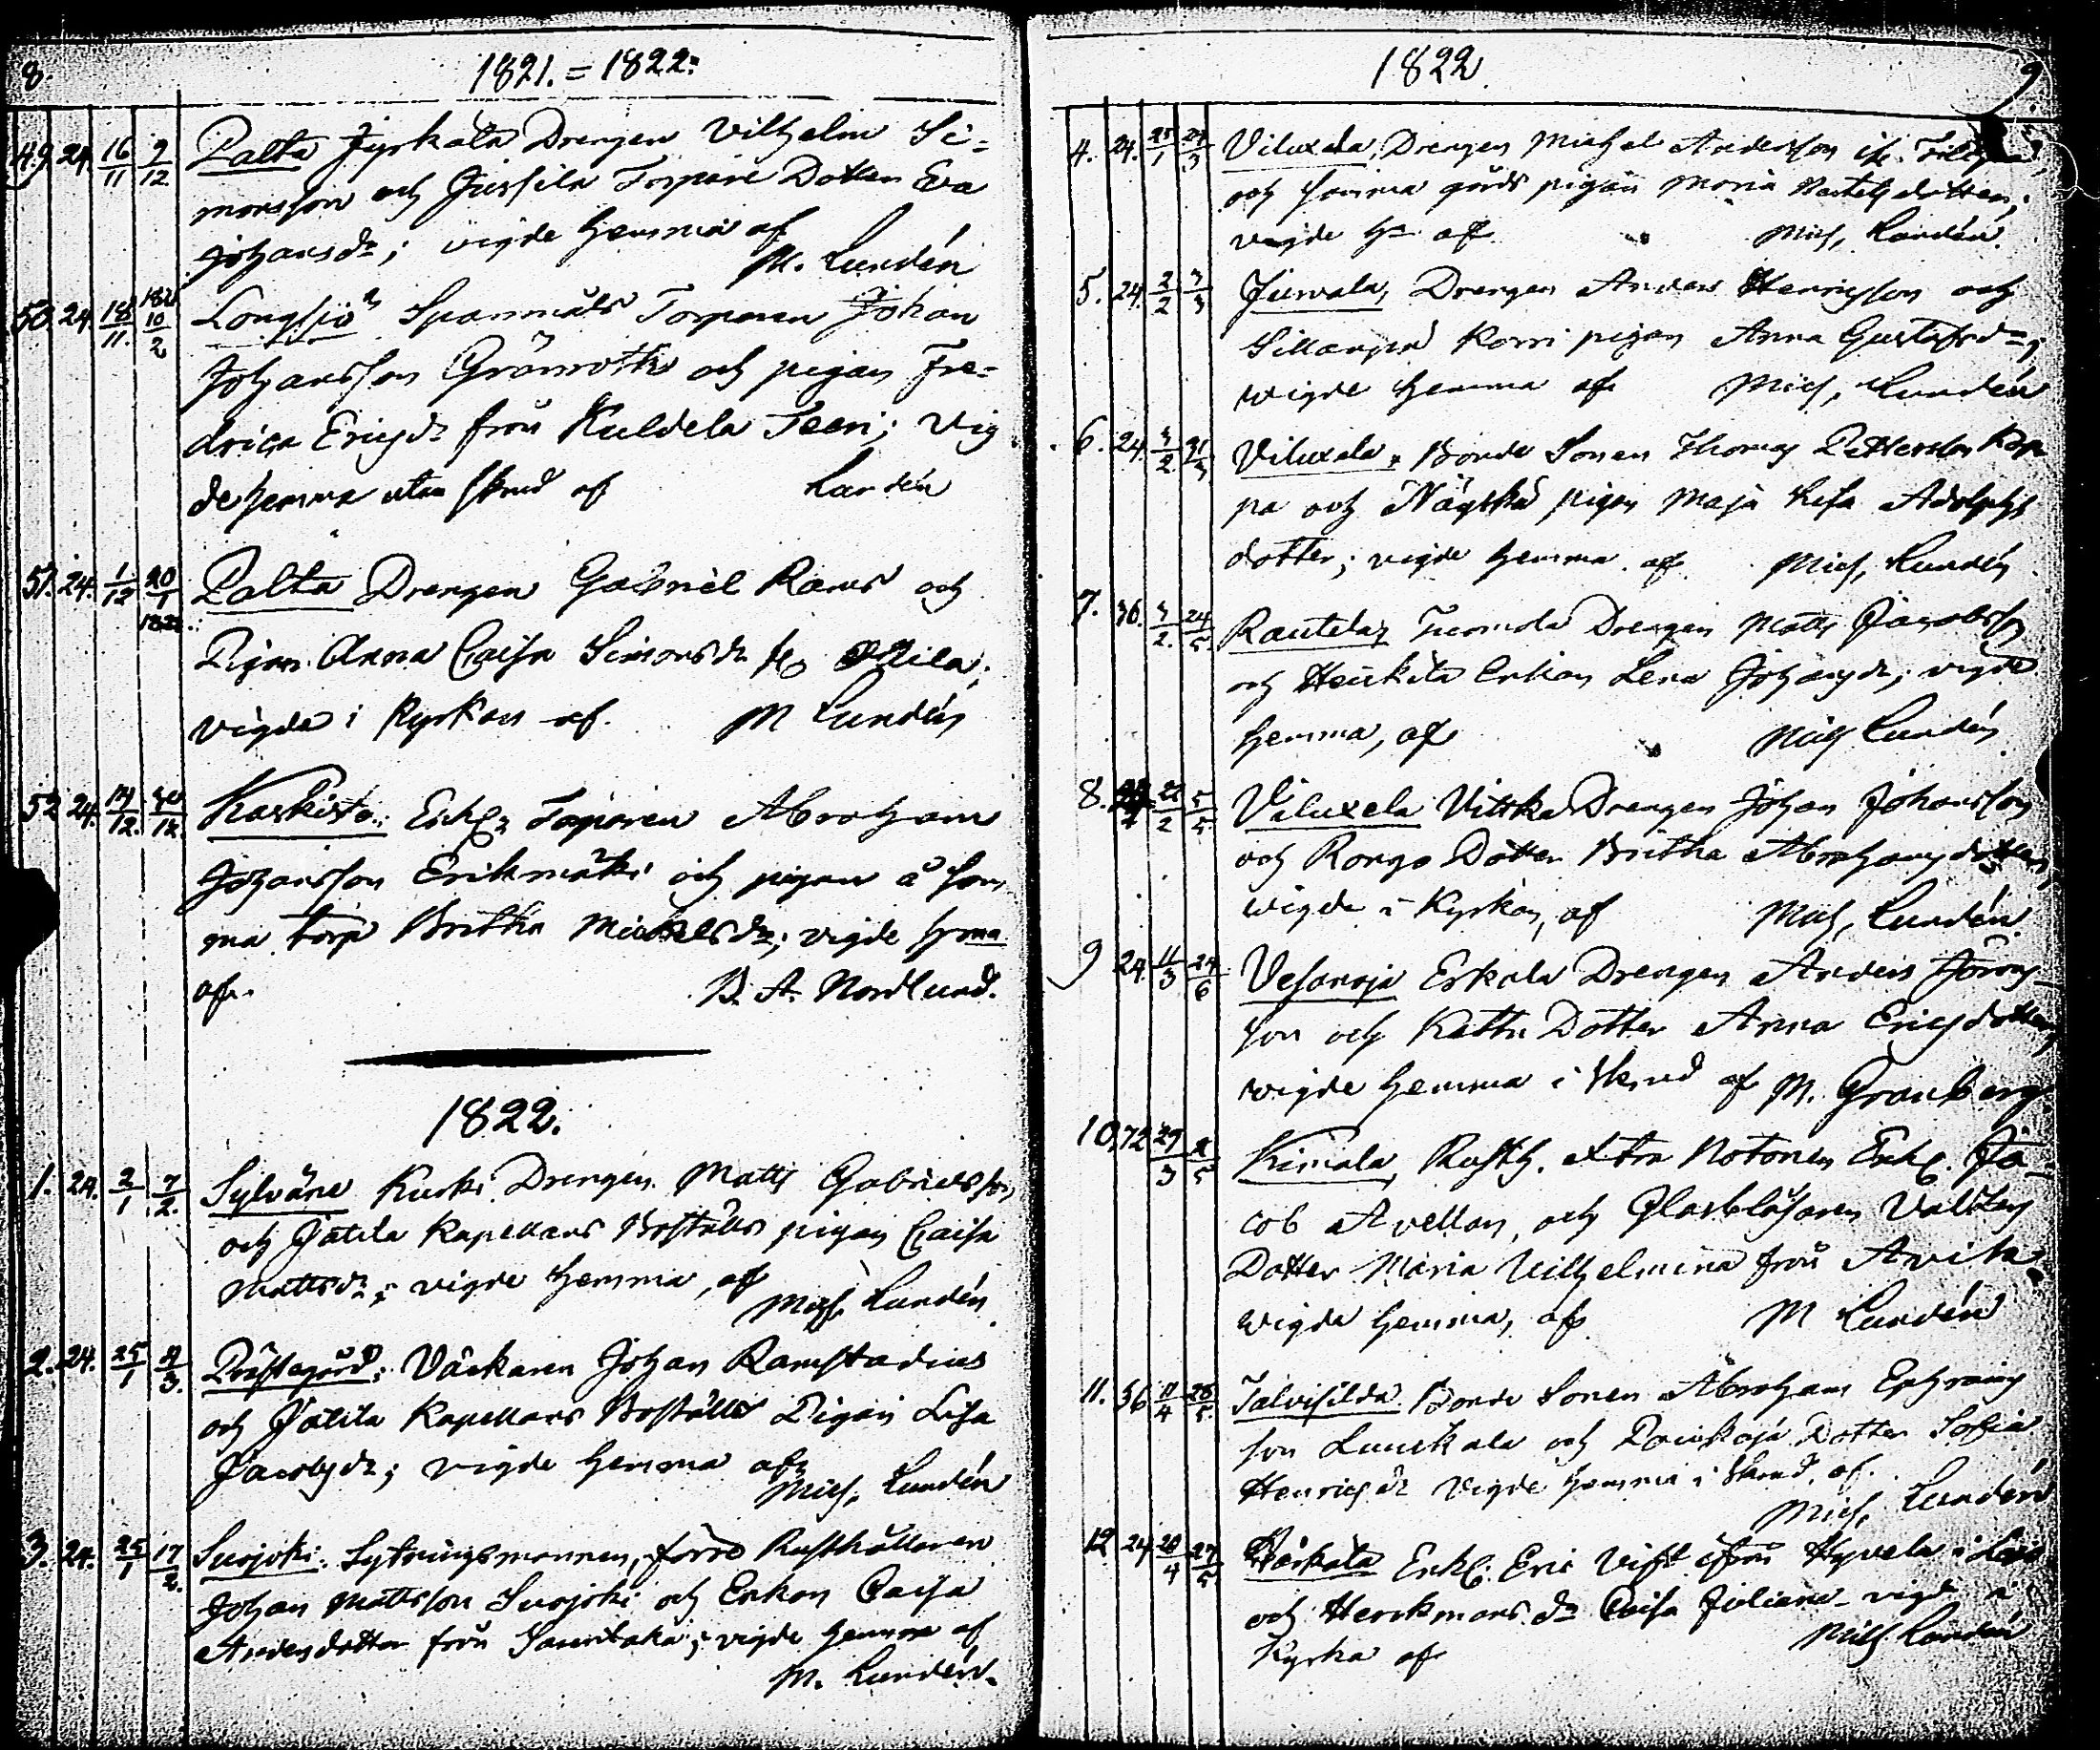 8.
1821. = 1822.
49. 24. 16/11 9/12 Palta Jyrkälä Drengen Vilhelm Si=
monsson och Jussila Torpare Dotter Eva
Johansdr; vigde hemma af
M. Lundén
50. 24. 18/11. 1822 10/2 Långsjö Torparen Johan
Johansson Grönroth och pigan Fre=
drica Ericsdr från Kuldela Teeri; Vig
de hemma utan skrud af Lundén
51. 24. 1/12 20/1 1822 Palta Drengen Gabriel Rams och
Pigan Anna Caisa Simonsdr
vigde i Kyrkan af M Lundén
52 24. 14/12. 30/12. Kaskisto: Enkl. Torparen Abraham
Johansson Erikmäki och pigan å sam
ma torp Britha Michelsdr; vigde hma
af. B. A. Nordlund.
1822.
1. 24. 2/1 7/2. Sylväne Kurki Drengen Matts Gabrielsson
och Jätila Kapellans Boställs pigan Caisa
Mattsdr; vigde hemma, af
Mich. Lundén
2. 24. 25/1 3. Prästegård: Väckaren Johan Ramstadius
och Jätila Kapellans Boställs Pigan Lisa
Jacobsdr; vigde hemma af
Mich. Lundén
3. 24. 25/1 17/2. Suojoki. Sytningsmannen, förre Rusthållaren
Johan Mattsson Suojoki och Enkan Caisa
Andersdotter från; vigde hemma af
M. Lundén.
1822
9.
4. 24. 25/1 24/3 Viluxela, Drengen Michel Andersson
och samma gårds pigan Maria dotter;
vigde hma af Mich. Lundén.
5. 24. 2/2 3/3 Juvala, Drengen Anders Henricsson och
Sillanpää Korri pigan Anna Gustafsdr;
wigde hemma af Mich. Lundén
6. 24. 3/2 31/3 Viluxela, Bonde Sonen Thomas Pettersson
pa och pigan Maja Lisa Adolphs
dotter; vigde hemma af Mich. Lundén
7. 36. 3/2. 24/5. Rautela, Tuomola Drengen Matts Jacobsson
och Heickilä Enkan Lena Johansdr; vigde
hemma, af Mich Lundén
8. 22/2 5/5. Viluxela Vittka Drengen Johan Johansson
och Rongo Dotter Britha Abrahamsdotter
wigde i Kyrkan, af Mich. Lundén.
9 24. 11/3 24/6 Vesanoja Erkola Drengen Anders
son och Kattu Dotter Anna Ericsdotter
wigde hemma i skrud af M. Granberg.
10. 72 29/3 Kimala, Rusth. Notonen Enkl. Ja=
cob Avellan, och Glasblåsaren
Dotter Maria Vilhelmina från Avik
wigde hemma, af M Lundén
11. 36 11/4 26/5. Talvisilda Bonde Sonen Abraham Ephraims
son och Dotter Sofia
Henricsdr Vigde hemma i skrud. af.
Mich. Lundén
12 24. 28/4 27/5 Härkälä Enkl. Eric från Hyvelä i
och Herckmans dr Caisa Juliana vigde i
Kyrka af Mich Lundén